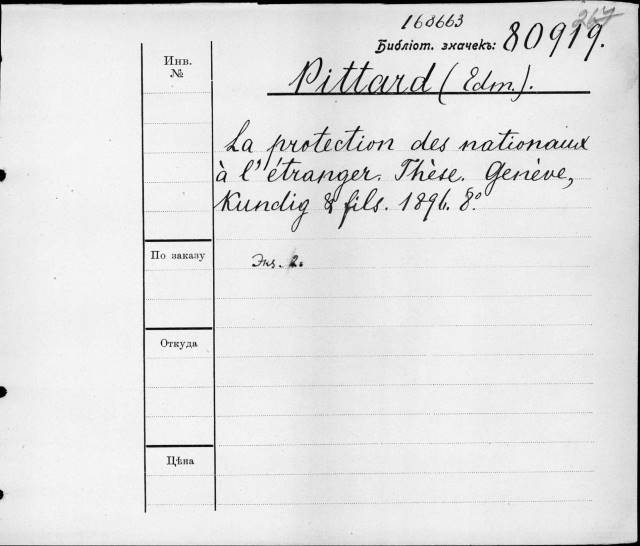 267
168663
Библіот. значекъ: 80919.
Инв.
№
Pittard (Edm.).
La protection des nationaux
à l'étranger. Thèse. Genève,
Kundig & fils. 1896. 8º
По заказу
Экз. 2.
Откуда
Цѣна